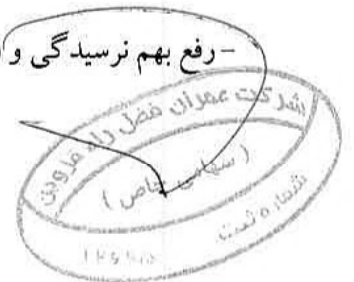 -رفع بهم نرسیدگی و
شرکت عمران فصل راه قزوین
(سهامی خاص)
شماره ثبت